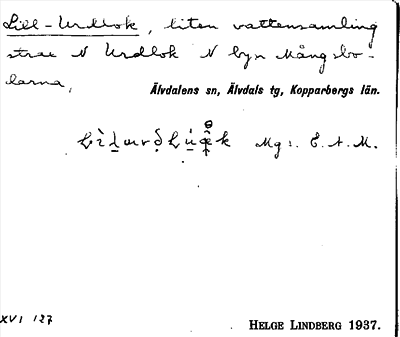 Lill-Urdlok, liten vattensamling
strax N Urdlok N byn Mångsbo-
darna,
Älvdalens sn, Älvdals tg, Kopparbergs län.
Mg: E.A.M.
XVI 127
HELGE LINDBERG 1937.